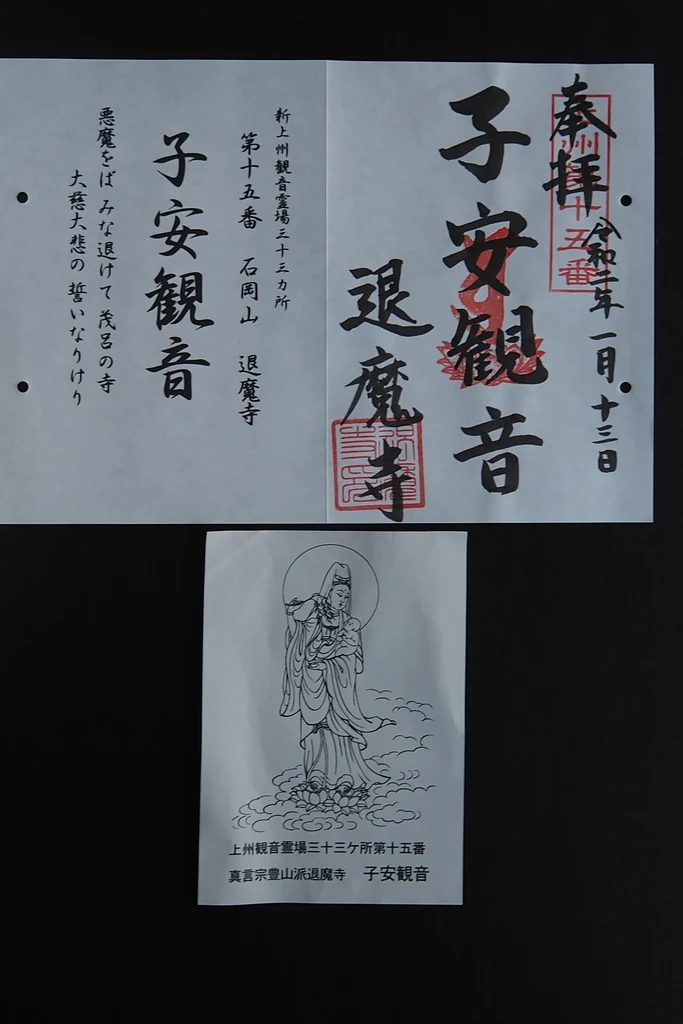 奉拝
令和二年 一月十三日
子安観音
退魔寺
新上州観音霊場三十三カ所
第十五番 石岡山 退魔寺
子安観音
悪魔をば みな退けて 茂呂の寺
大慈大悲の 誓いなりけり
上州観音霊場三十三ケ所第十五番
真言宗豊山派退魔寺 子安観音